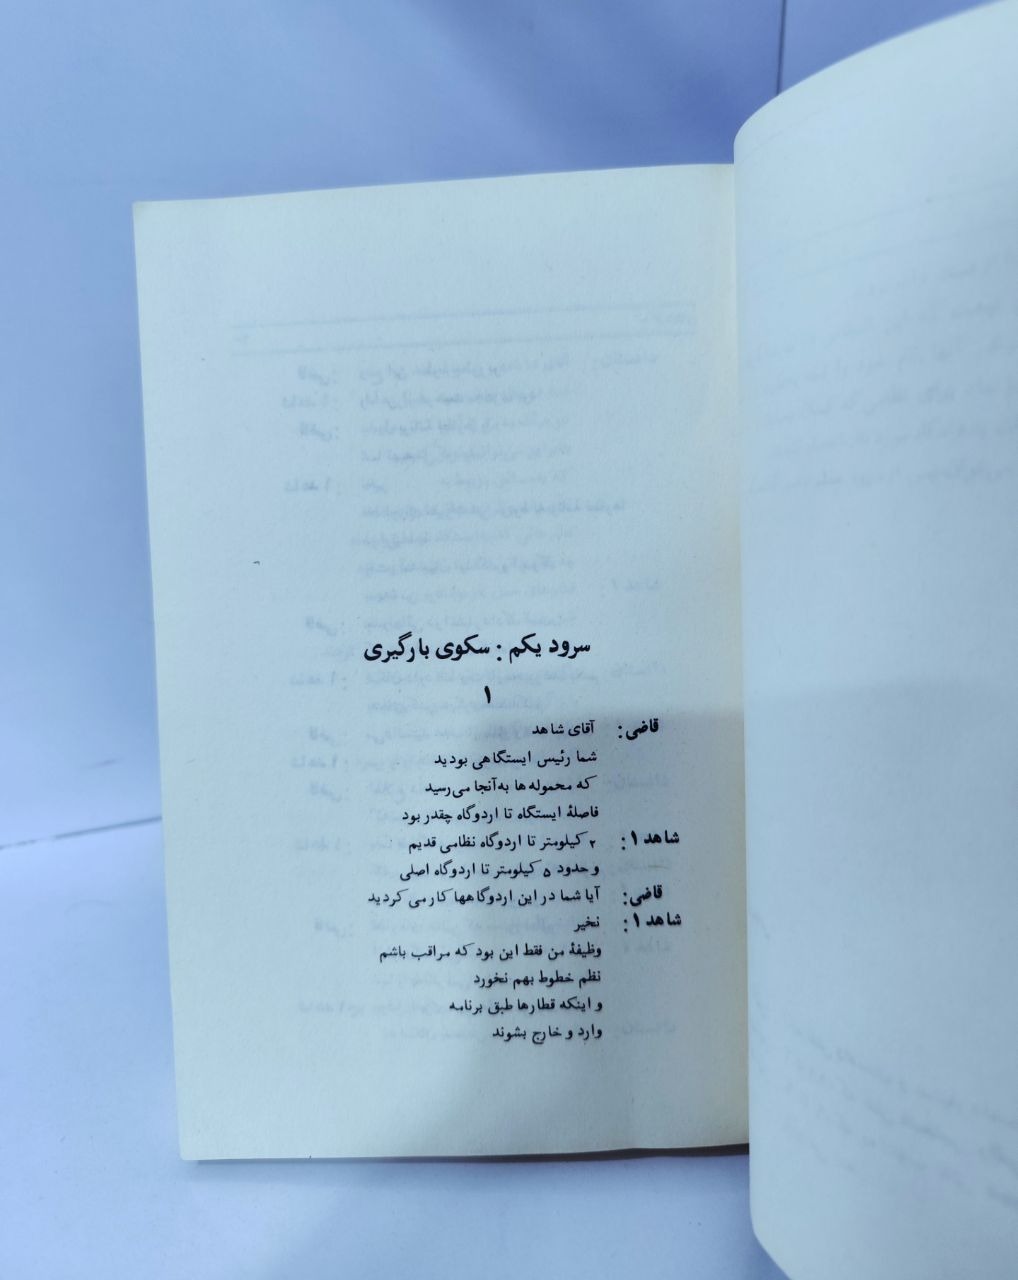 سرود یکم : سکوی بارگیری
۱
قاضی: آقای شاهد
شما رئیس ایستگاهی بودید
که محموله‌ها به‌آنجا می‌رسید
فاصلهٔ ایستگاه تا اردوگاه چقدر بود
شاهد ۱: ۲ کیلومتر تا اردوگاه نظامی قدیم
و حدود ۵ کیلومتر تا اردوگاه اصلی
قاضی: آیا شما در این اردوگاهها کار می‌کردید
شاهد ۱: نخیر
وظیفهٔ من فقط این بود که مراقب باشم
نظم خطوط بهم نخورد
و اینکه قطارها طبق برنامه
وارد و خارج بشوند